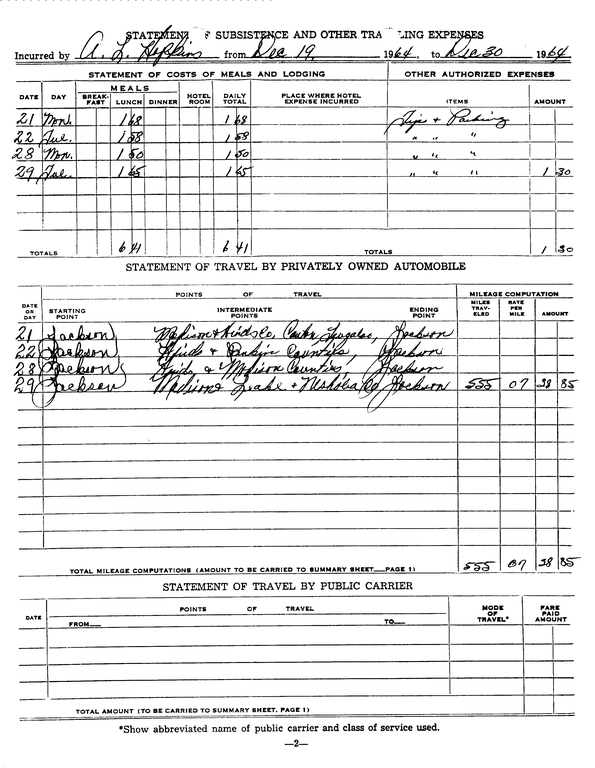 STATEMENT OF SUBSISTENCE AND OTHER TRA LING EXPENSES
Incurred by A. L. Hopkins from Dec 19, 1964, to Dec 30 1964
STATEMENT OF COSTS OF MEALS AND LODGING OTHER AUTHORIZED EXPENSES
DATE DAY MEALS BREAK-FAST LUNCH DINNER HOTEL ROOM DAILY TOTAL PLACE WHERE HOTEL EXPENSE INCURRED ITEMS AMOUNT
21 Mon. 1 68 1 68 Tips & Parking
22 Tue. 1 58 1 58 " " "
28 Mon. 1 50 1 50 " " "
29 Tue. 1 65 1 65 " " " 1 30
TOTALS 6 41 6 41 TOTALS 1 30
STATEMENT OF TRAVEL BY PRIVATELY OWNED AUTOMOBILE
POINTS OF TRAVEL MILEAGE COMPUTATION
DATE OR DAY STARTING POINT INTERMEDIATE POINTS ENDING POINT MILES TRAV-ELED RATE PER MILE AMOUNT
21 Jackson Madison & Hinds Co, Jackson
22 Jackson Hinds & Rankin Counties, Jackson
28 Jackson Hinds & Madison Counties, Jackson
29 Jackson Madison Leake & Neshoba Co Jackson 555 07 38 85
TOTAL MILEAGE COMPUTATIONS (AMOUNT TO BE CARRIED TO SUMMARY SHEET—PAGE 1) 555 07 38 85
STATEMENT OF TRAVEL BY PUBLIC CARRIER
DATE POINTS OF TRAVEL MODE OF TRAVEL* FARE PAID AMOUNT
FROM— TO—
TOTAL AMOUNT (TO BE CARRIED TO SUMMARY SHEET, PAGE 1)
*Show abbreviated name of public carrier and class of service used.
—2—